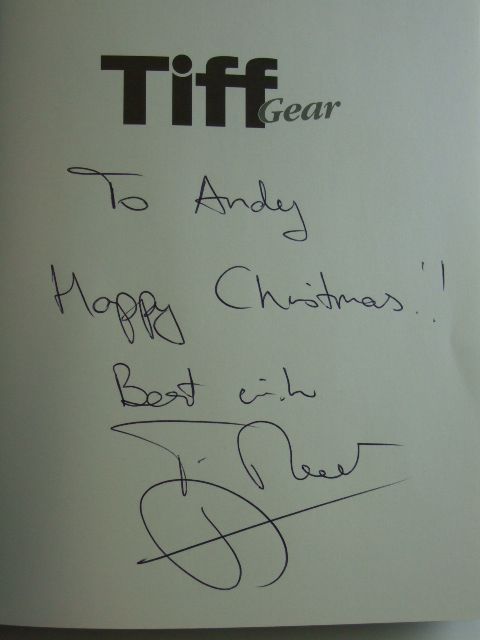 Tiff
Gear
To Andy
Happy Christmas!!
Best wishes